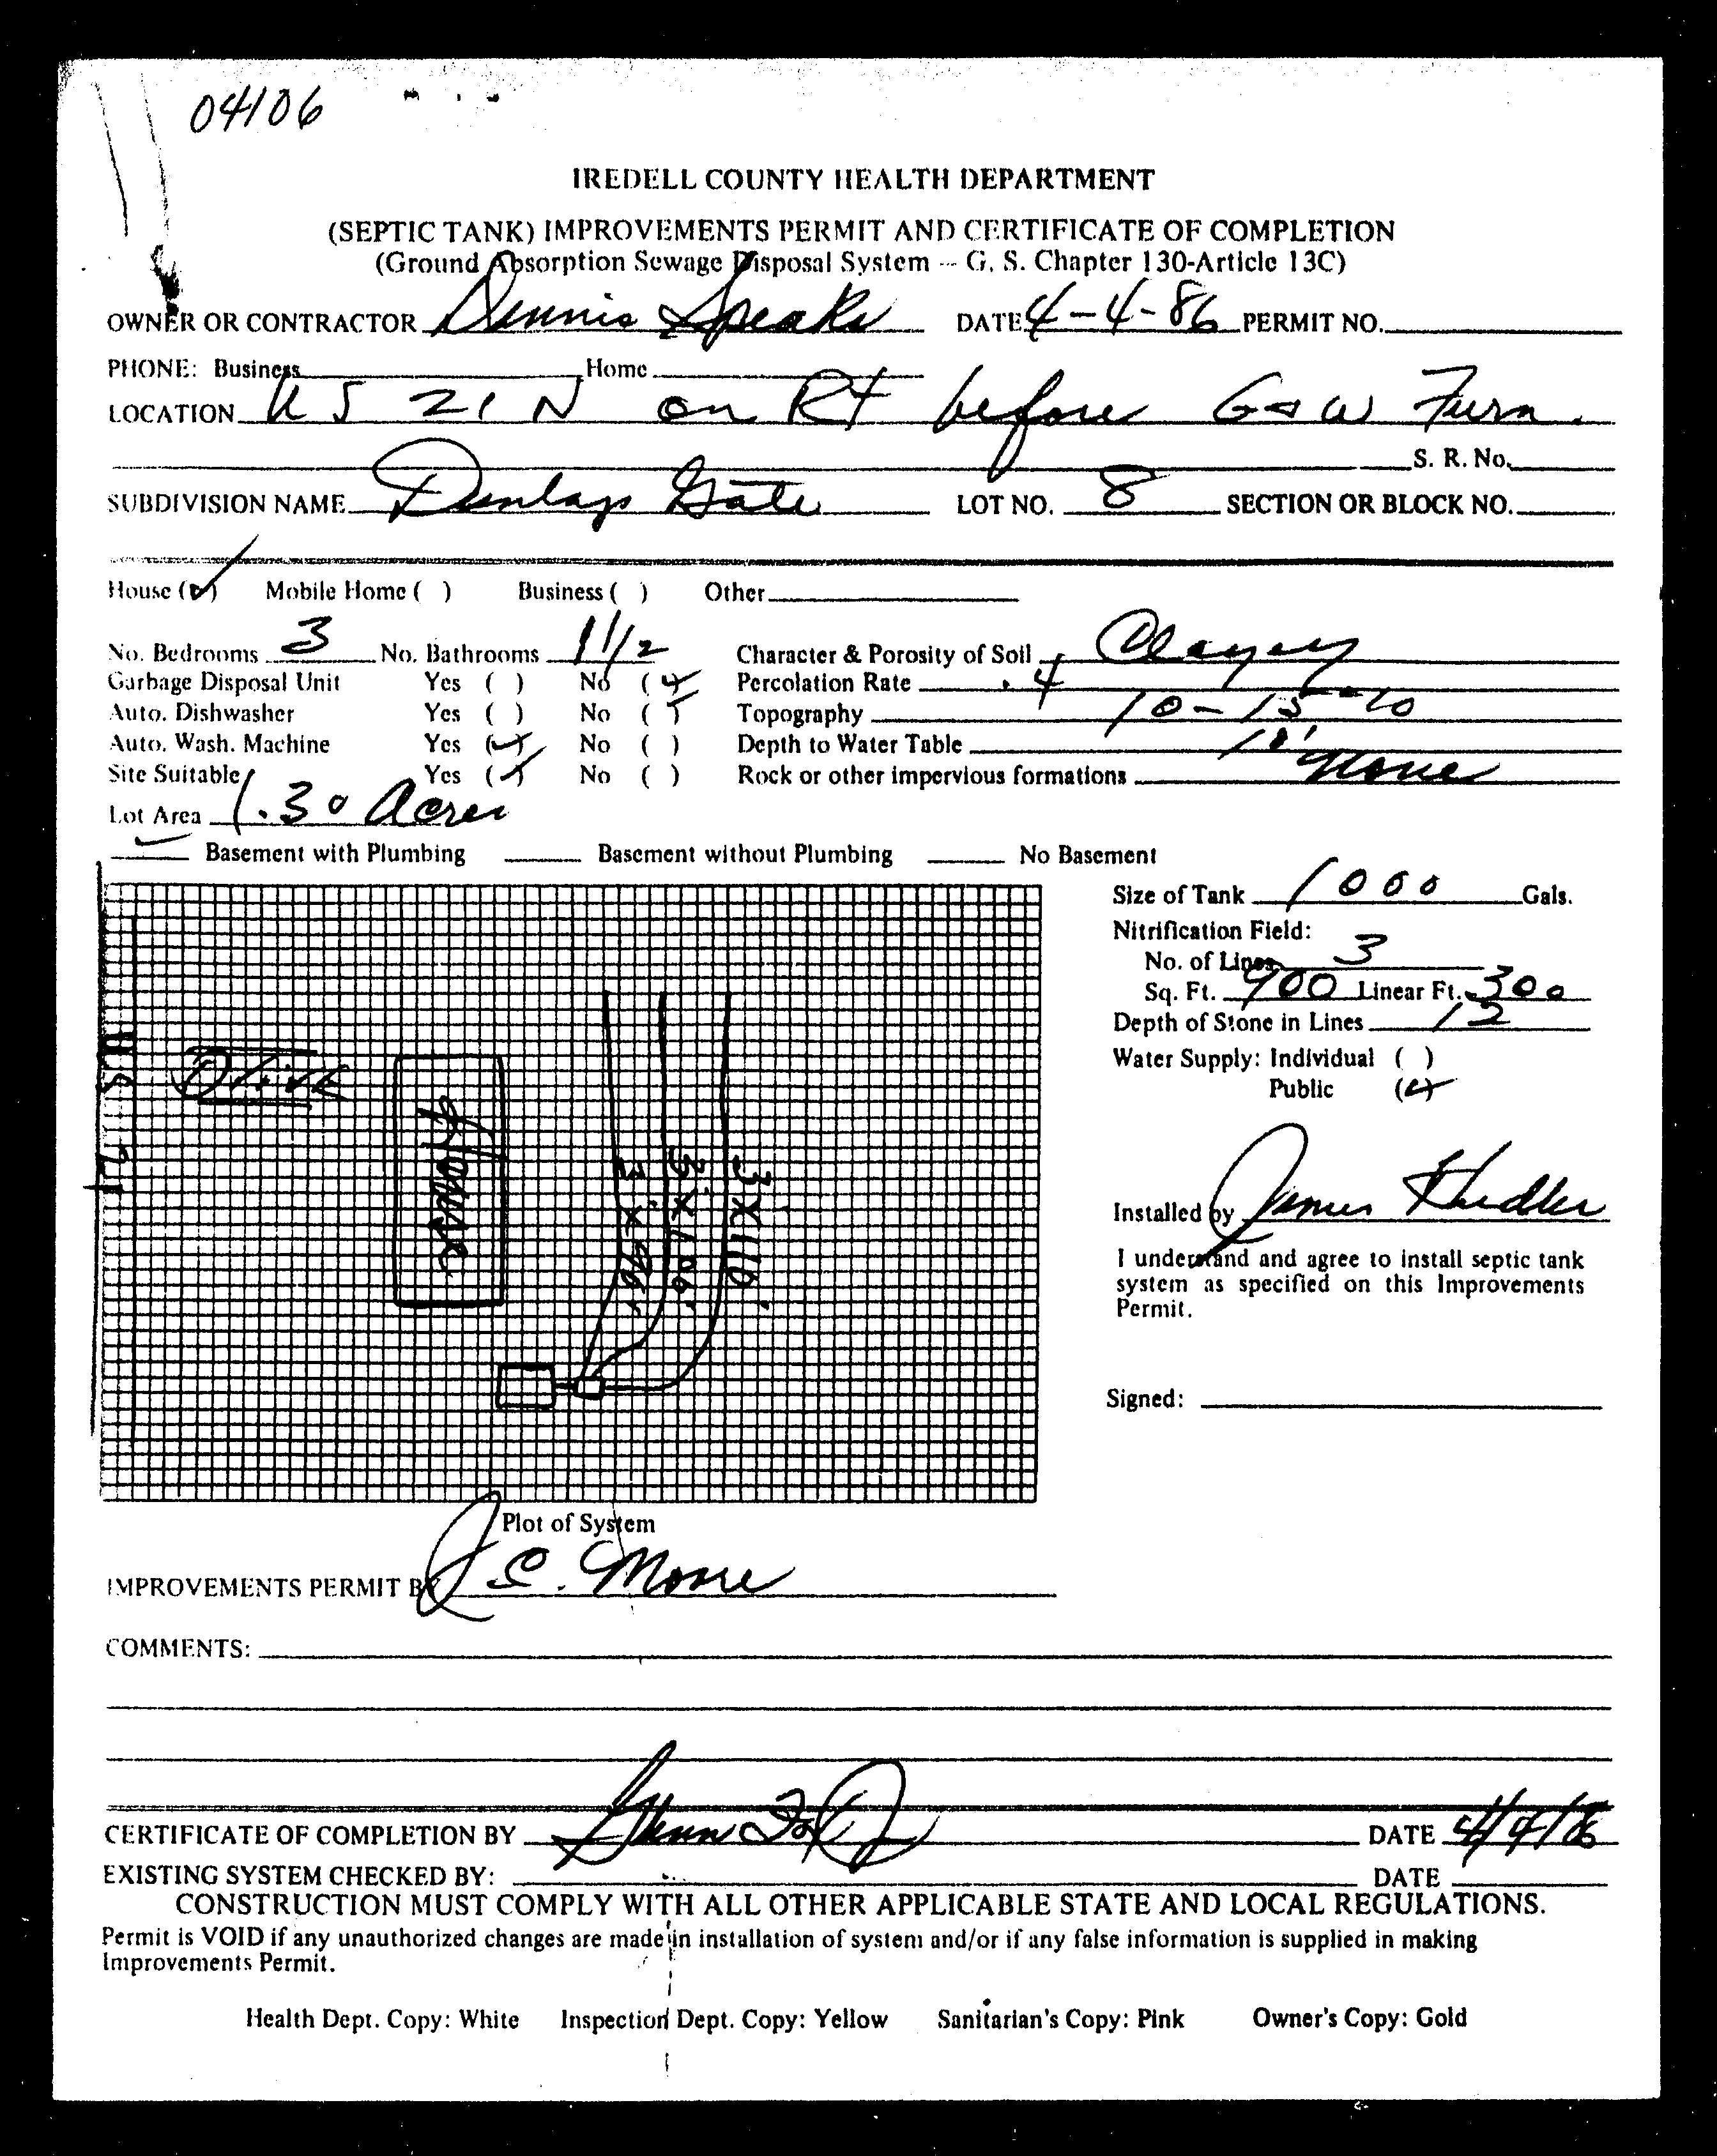 04106
IREDELL COUNTY HEALTH DEPARTMENT
(SEPTIC TANK) IMPROVEMENTS PERMIT AND CERTIFICATE OF COMPLETION
(Ground Absorption Sewage Disposal System -- G. S. Chapter 130-Article 13C)
OWNER OR CONTRACTOR Dennis Speaks DATE 4-4-86 PERMIT NO.
PHONE: Business Home
LOCATION US 21 N on Rt before G & W Furn.
S. R. No.
SUBDIVISION NAME Dunlap Gate LOT NO. 8 SECTION OR BLOCK NO.
House (✓) Mobile Home ( ) Business ( ) Other
No. Bedrooms 3 No. Bathrooms 1 1/2 Character & Porosity of Soil Clayey
Garbage Disposal Unit Yes ( ) No (✓) Percolation Rate .4
Auto. Dishwasher Yes ( ) No (✓) Topography 10-15%
Auto. Wash. Machine Yes (✓) No ( ) Depth to Water Table 10'
Site Suitable Yes (✓) No ( ) Rock or other impervious formations None
Lot Area 1.30 Acres
✓ Basement with Plumbing Basement without Plumbing No Basement
Size of Tank 1000 Gals.
Nitrification Field:
No. of Lines 3
Sq. Ft. 900 Linear Ft. 300
Depth of Stone in Lines 12
Water Supply: Individual ( )
Public (✓)
US 21
Drive
House
3'x90'
3'x100'
3x110'
Installed by James
I understand and agree to install septic tank
system as specified on this Improvements
Permit.
Signed:
Plot of System
IMPROVEMENTS PERMIT BY J C. Moore
COMMENTS:
CERTIFICATE OF COMPLETION BY Glenn DATE 4/4/86
EXISTING SYSTEM CHECKED BY: DATE
CONSTRUCTION MUST COMPLY WITH ALL OTHER APPLICABLE STATE AND LOCAL REGULATIONS.
Permit is VOID if any unauthorized changes are made in installation of system and/or if any false information is supplied in making
Improvements Permit.
Health Dept. Copy: White Inspection Dept. Copy: Yellow Sanitarian's Copy: Pink Owner's Copy: Gold